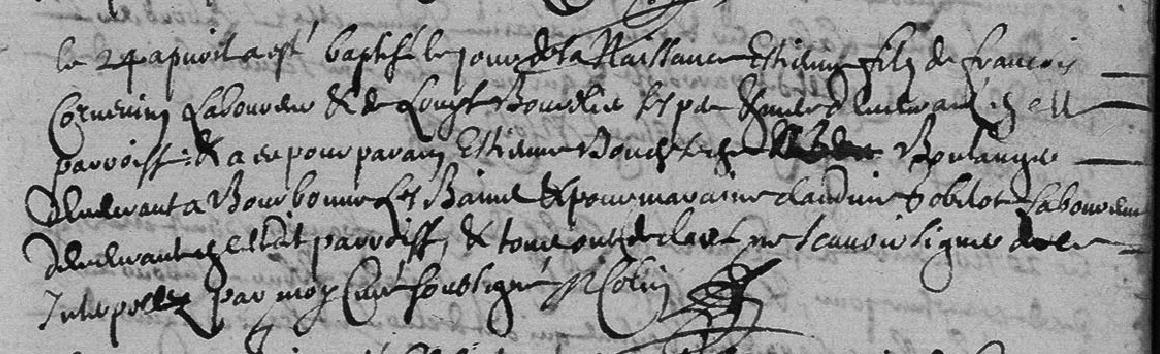 le 24 apvril a esté baptisé le jour de sa Naissance Estienne filz de francois
Laboureur & de Louyse ses pere & mere demeurant en cette
parroisse & a eu pour parain Estienne Bouchu Boulanger
demeurant a Bourbonne les Bains & pour maraine claudine Gobelot Labour
demeurant en cette dit parroisse, & tous ont declaré ne scavoir signer de ce
Interpellez par moy Curé soubsigné N Colin